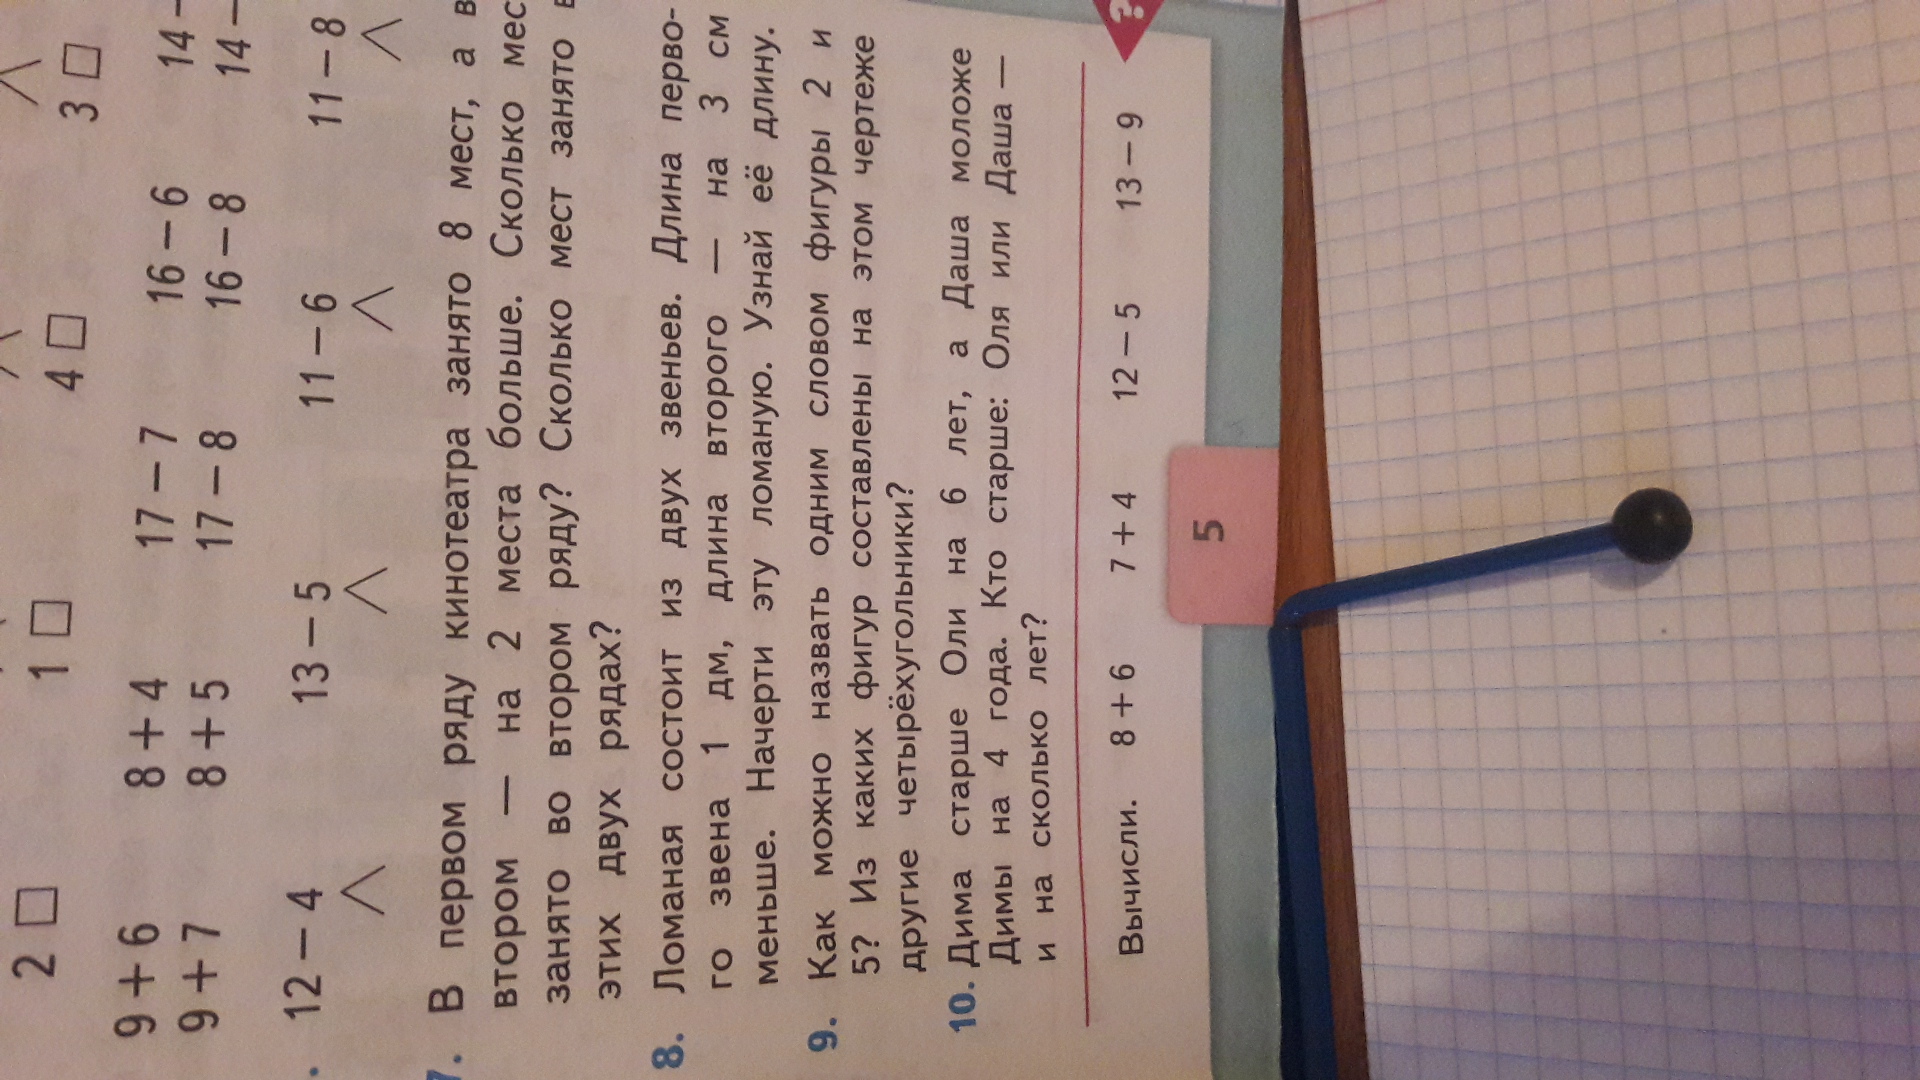 2 □ 1 □ 4 □ 3 □
9 + 6 8 + 4 17 − 7 16 − 6 14 −
9 + 7 8 + 5 17 − 8 16 − 8 14 −
12 − 4 13 − 5 11 − 6 11 − 8
7. В первом ряду кинотеатра занято 8 мест, а в
втором — на 2 места больше. Сколько мес
занято во втором ряду? Сколько мест занято в
этих двух рядах?
8. Ломаная состоит из двух звеньев. Длина перво-
го звена 1 дм, длина второго — на 3 см
меньше. Начерти эту ломаную. Узнай её длину.
9. Как можно назвать одним словом фигуры 2 и
5? Из каких фигур составлены на этом чертеже
другие четырёхугольники?
10. Дима старше Оли на 6 лет, а Даша моложе
Димы на 4 года. Кто старше: Оля или Даша —
и на сколько лет?
Вычисли. 8 + 6 7 + 4 12 − 5 13 − 9
?
5